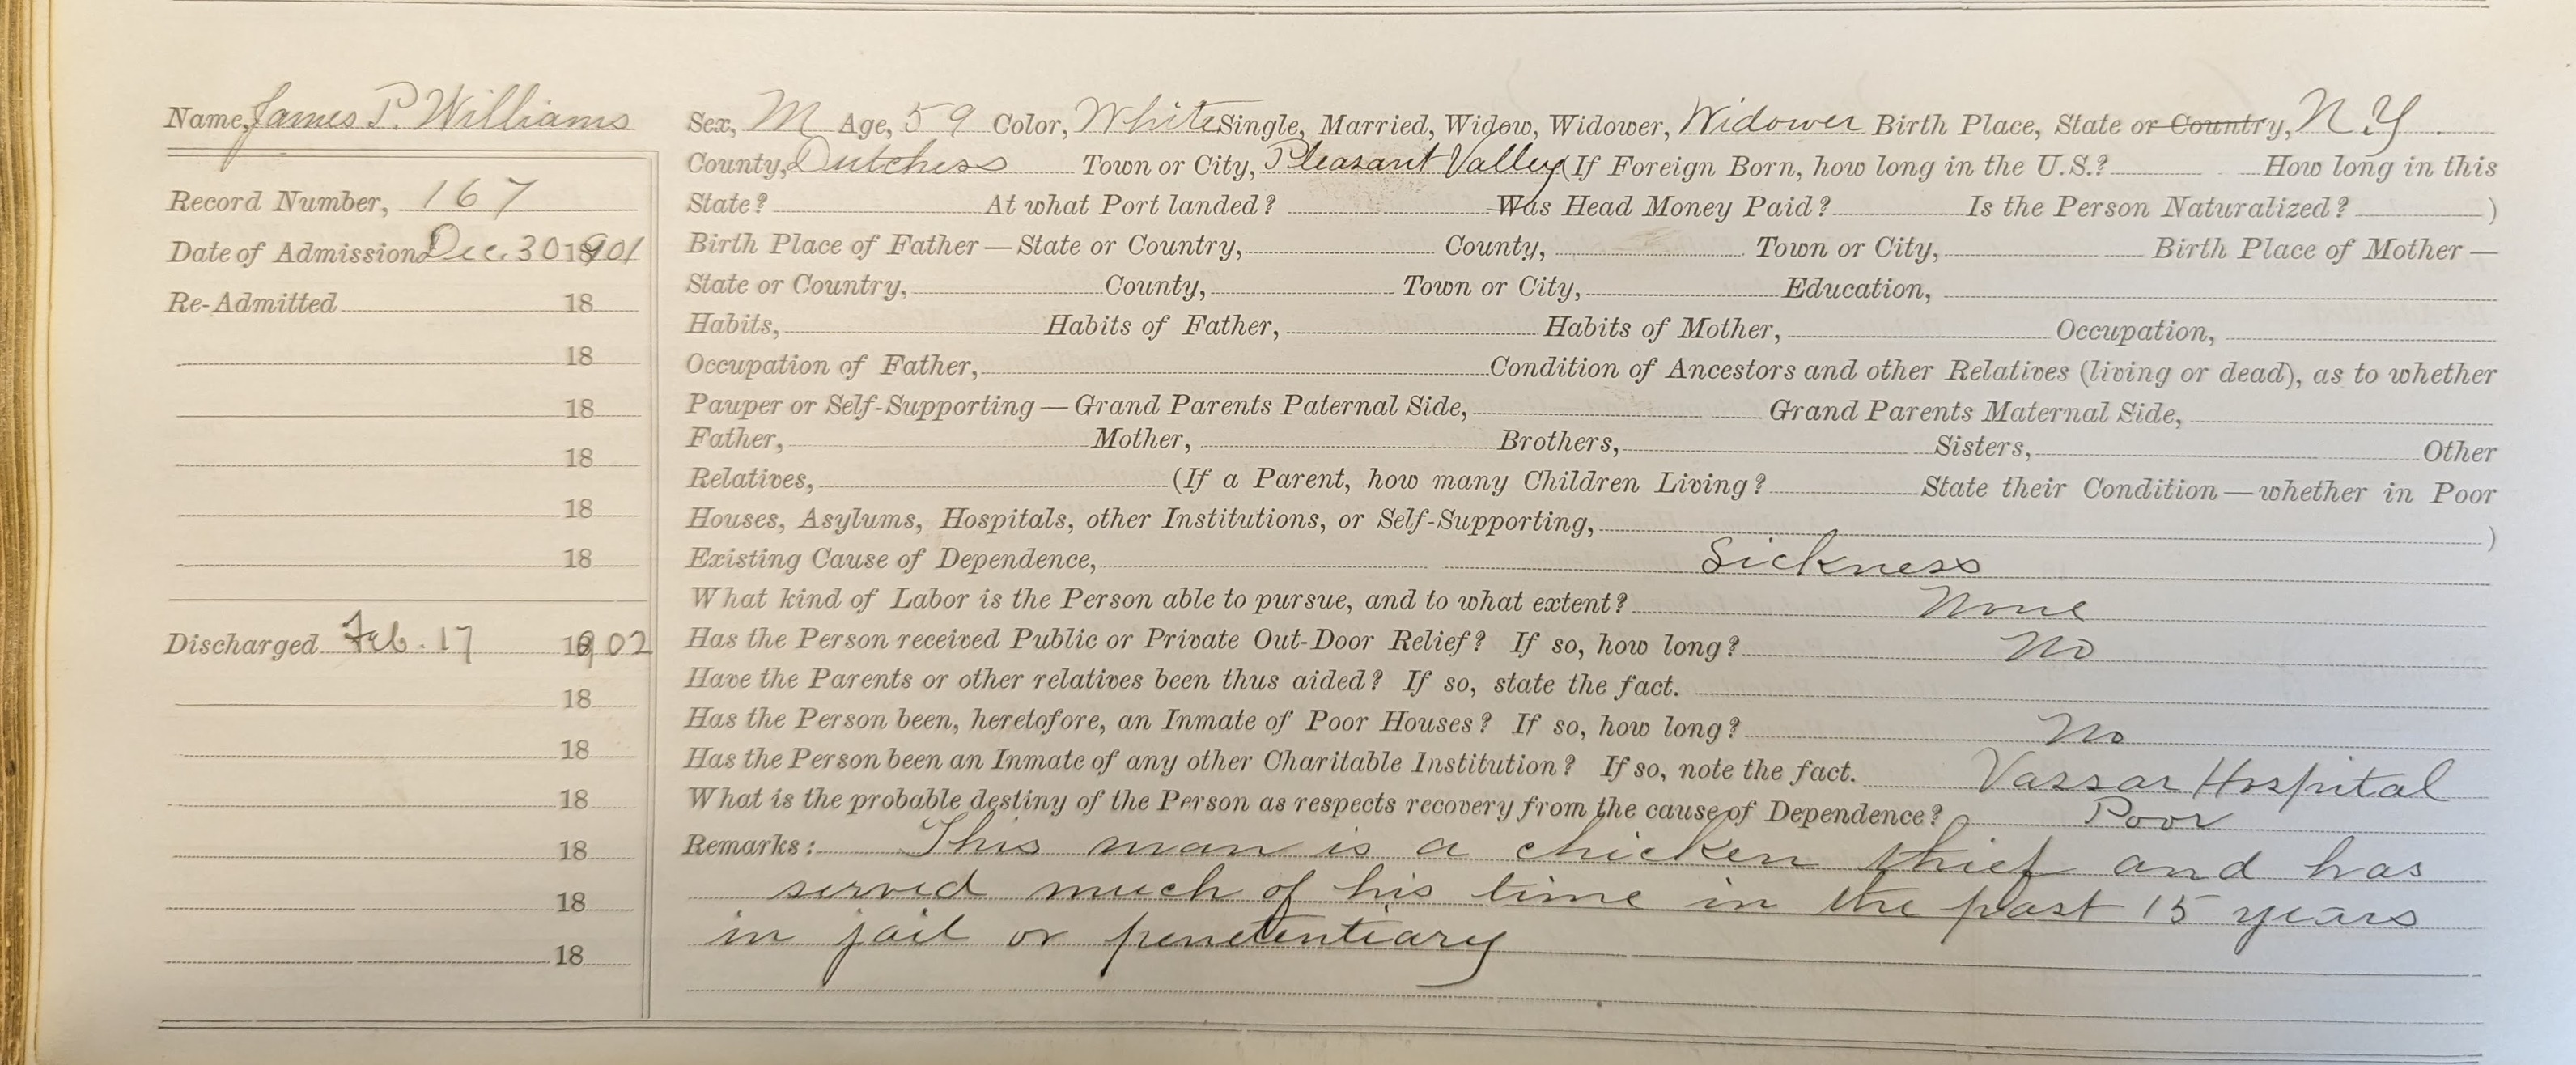 Name, James P. Williams
Record Number, 167
Date of Admission Dec. 30 1901
Re-Admitted 18
18
18
18
18
18
Discharged Feb. 17 1902
18
18
18
18
18
18
Sex, M Age, 59 Color, White Single, Married, Widow, Widower, Widower Birth Place, State or Country, N.Y.
County, Dutchess Town or City, Pleasant Valley (If Foreign Born, how long in the U.S.? How long in this
State? At what Port landed? Was Head Money Paid? Is the Person Naturalized? )
Birth Place of Father — State or Country, County, Town or City, Birth Place of Mother —
State or Country, County, Town or City, Education,
Habits, Habits of Father, Habits of Mother, Occupation,
Occupation of Father, Condition of Ancestors and other Relatives (living or dead), as to whether
Pauper or Self-Supporting — Grand Parents Paternal Side, Grand Parents Maternal Side,
Father, Mother, Brothers, Sisters, Other
Relatives, (If a Parent, how many Children Living? State their Condition — whether in Poor
Houses, Asylums, Hospitals, other Institutions, or Self-Supporting, )
Existing Cause of Dependence, Sickness
What kind of Labor is the Person able to pursue, and to what extent? None
Has the Person received Public or Private Out-Door Relief? If so, how long? No
Have the Parents or other relatives been thus aided? If so, state the fact.
Has the Person been, heretofore, an Inmate of Poor Houses? If so, how long? No
Has the Person been an Inmate of any other Charitable Institution? If so, note the fact. Vassar Hospital
What is the probable destiny of the Person as respects recovery from the cause of Dependence? Poor
Remarks: This man is a chicken thief and has
served much of his time in the past 15 years
in jail or penetentiary